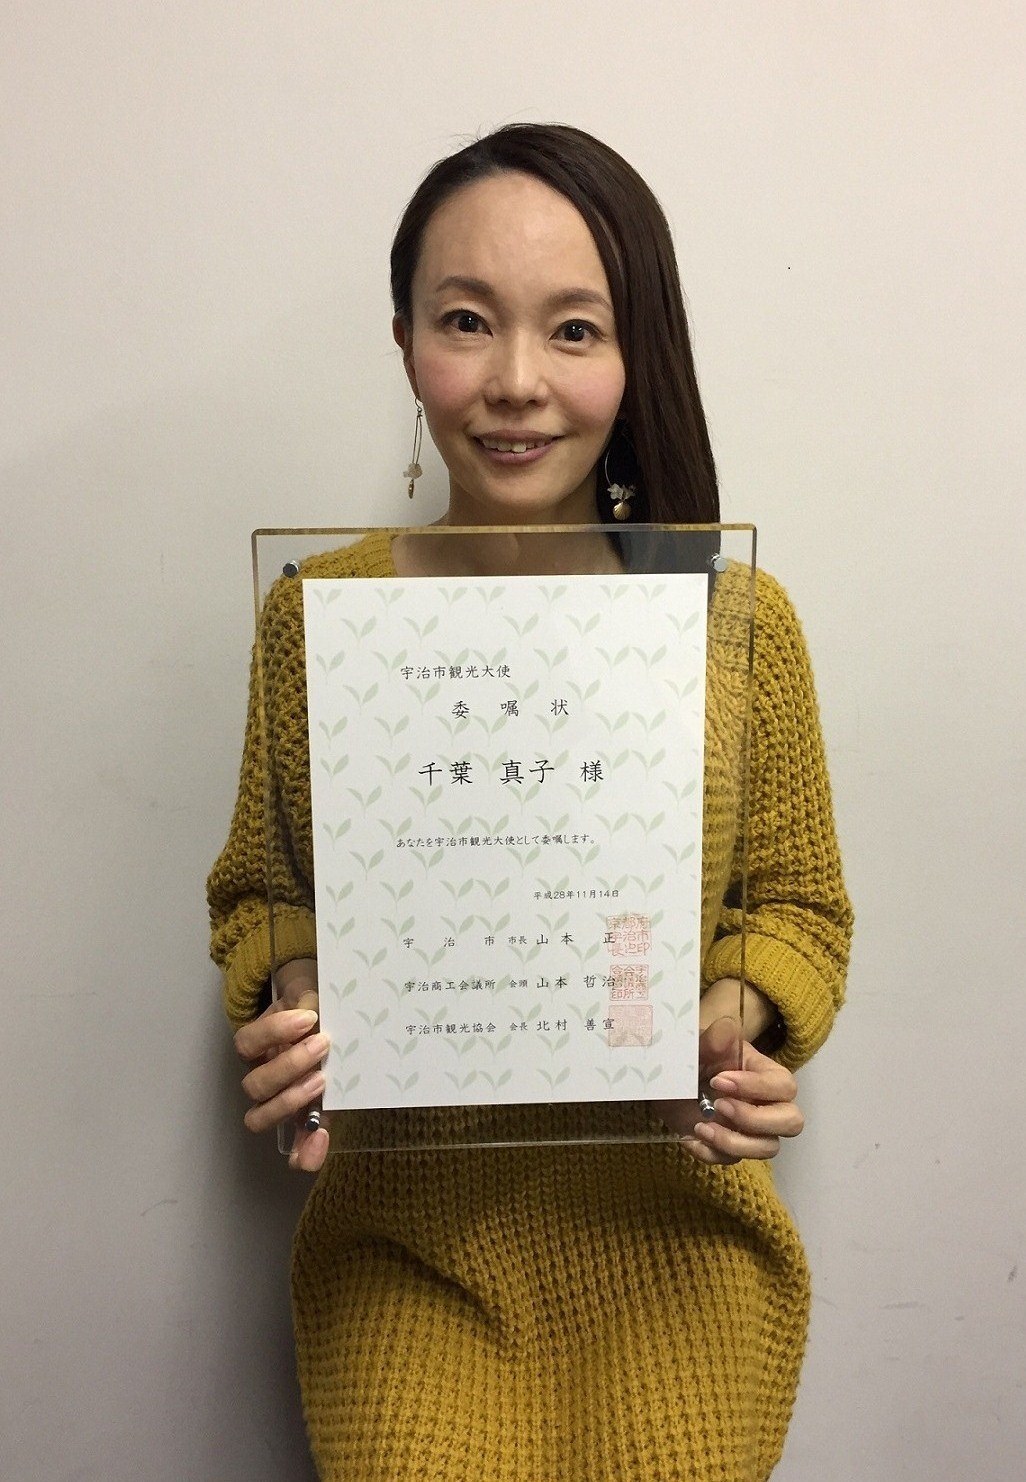 宇治市観光大使
委嘱状
千葉 真子 様
あなたを宇治市観光大使として委嘱します。
平成28年11月14日
宇治市 市長 山本 正
宇治商工会議所 会頭 山本 哲治
宇治市観光協会 会長 北村 善宣